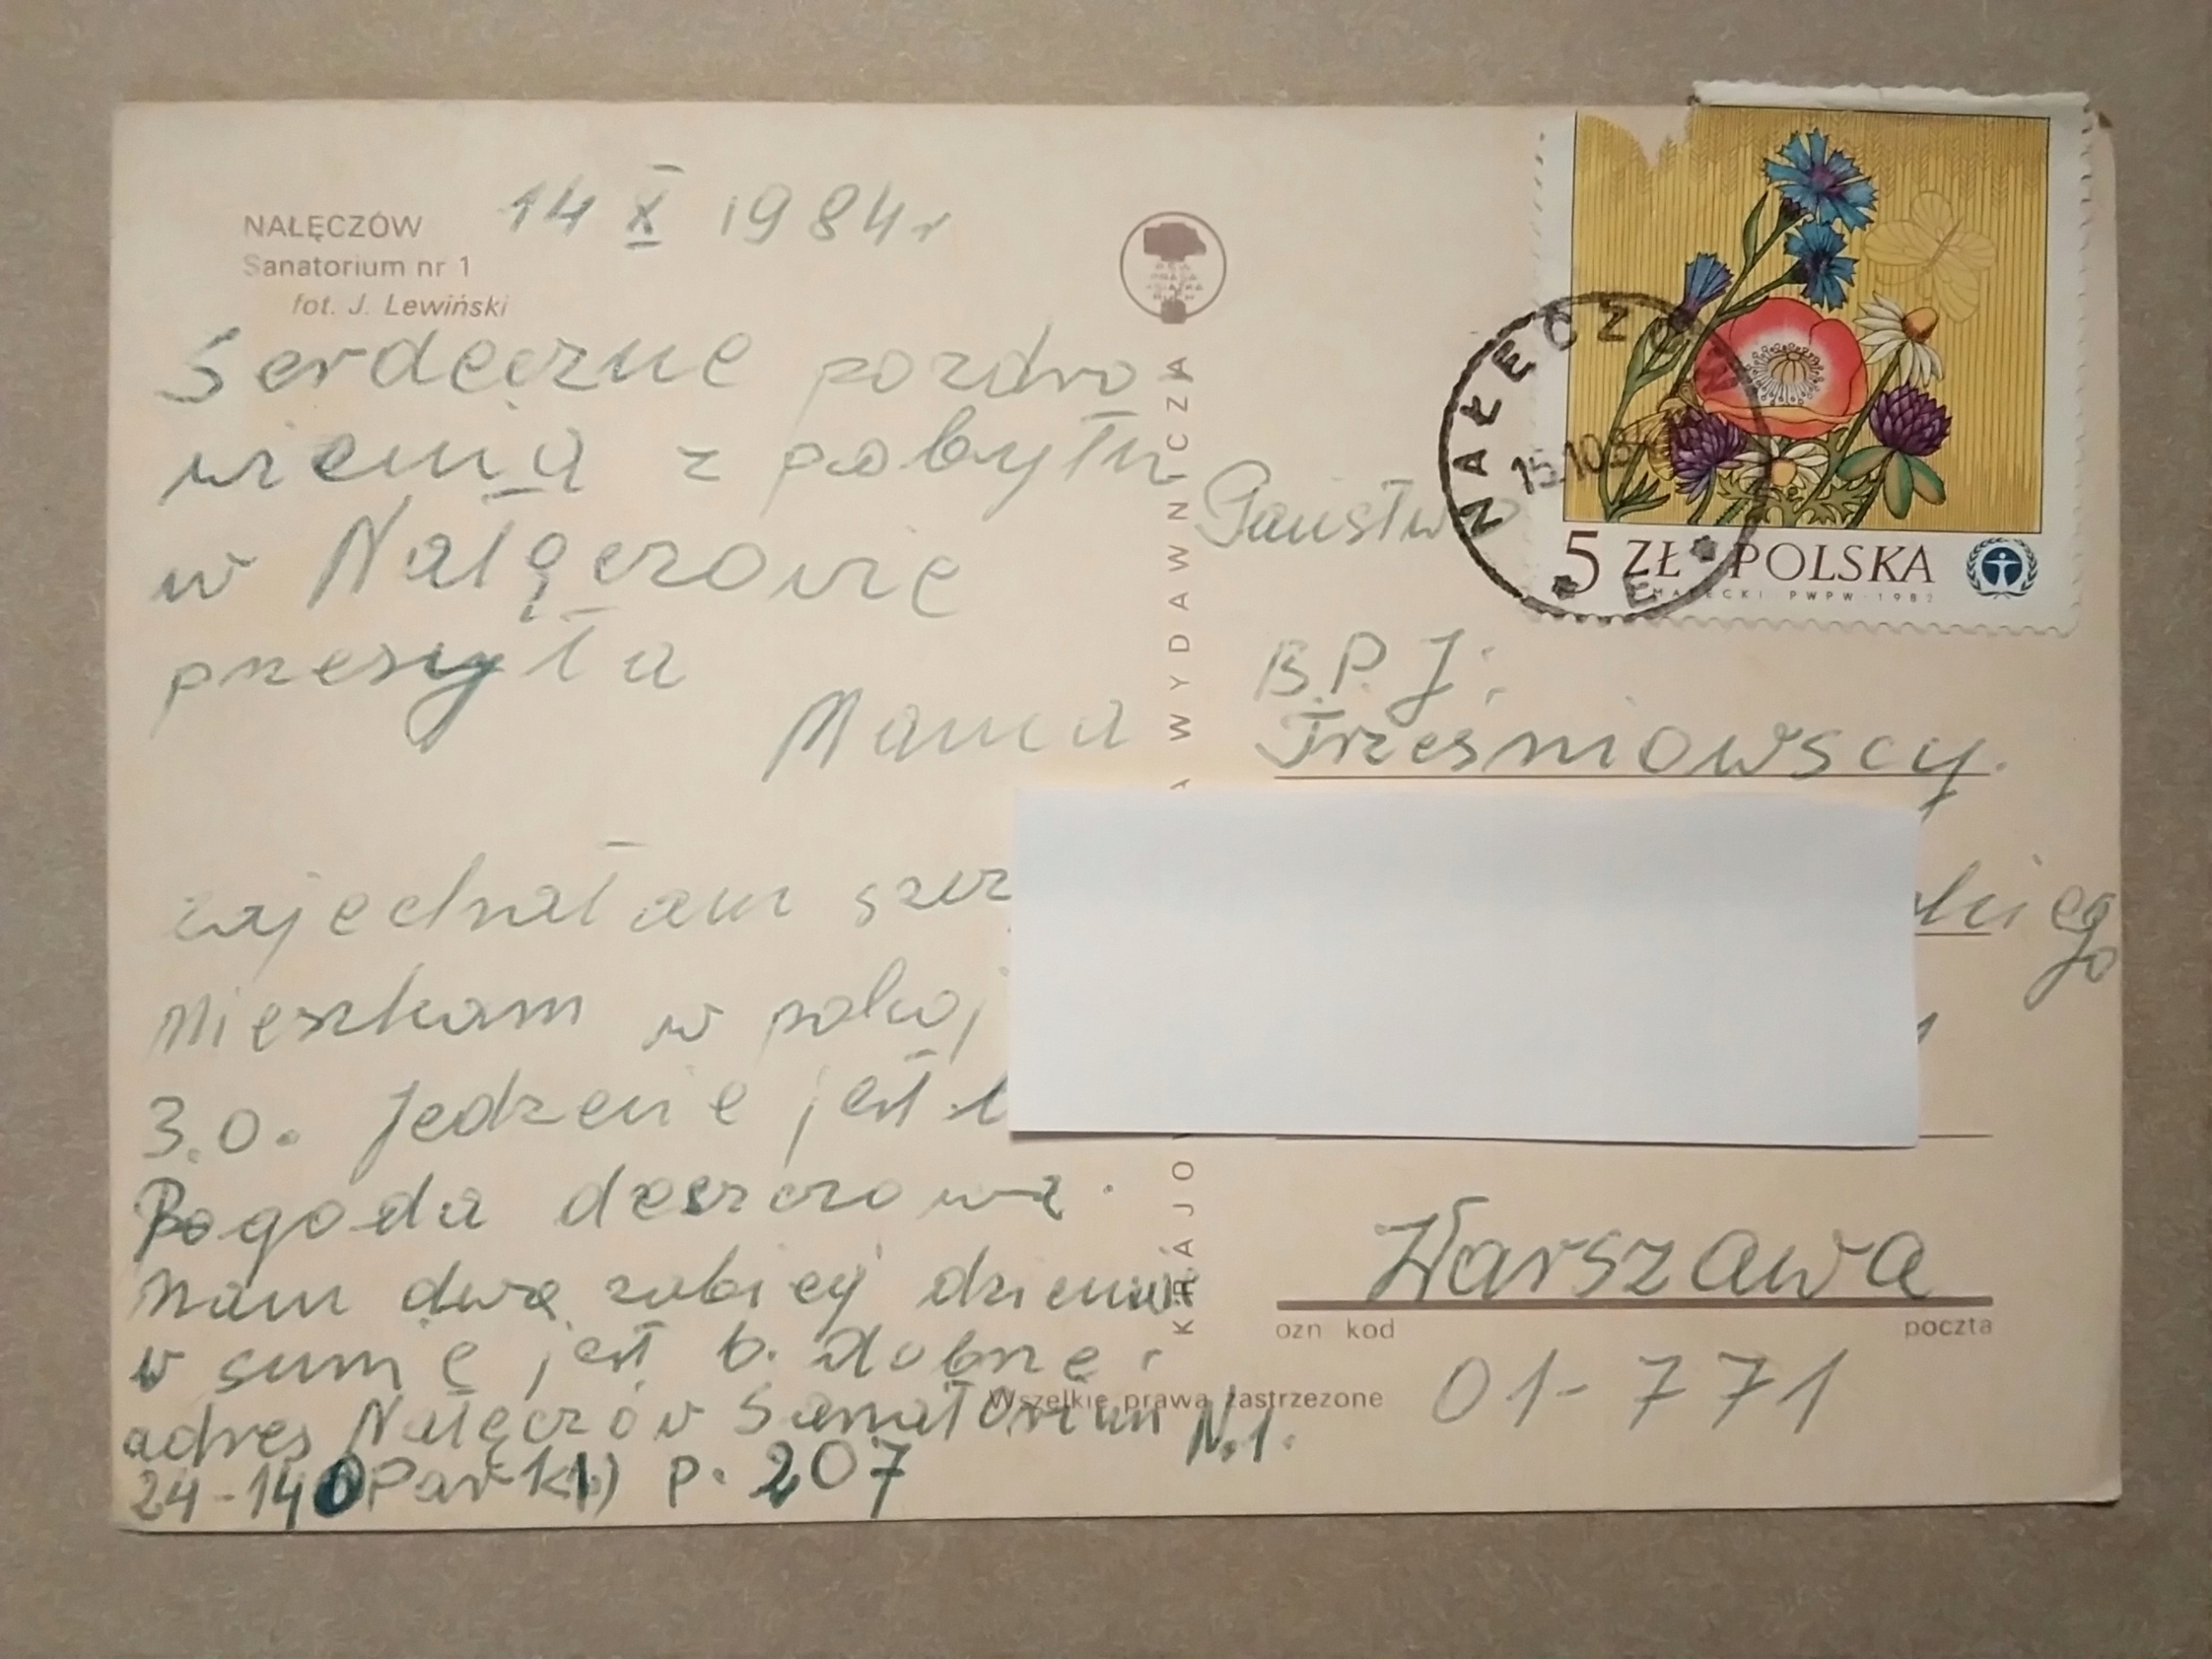 NAŁĘCZÓW
Sanatorium nr 1
fot. J. Lewiński
14 X 1984 r
Serdeczne pozdro
wienia z pobytu
w Nałęczowie
przesyła
Mama
zajechałam szcz
Mieszkam w pokoj
3.0. Jedzenie jest b
Pogoda deszczowa.
Mam dwa zabiegi dziennie
w sumie jest b. dobrze
adres Nałęczów Sanatorium N.1.
24-140 p. 207
KRAJO
A WYDAWNICZA
Wszelkie prawa zastrzeżone
NAŁĘCZÓW
15.10.8
5 ZŁ POLSKA
MAŁECKI PWPW-1982
Państwo
B.P.J.
Trześniowscy.
skiego
Warszawa
ozn kod poczta
01-771